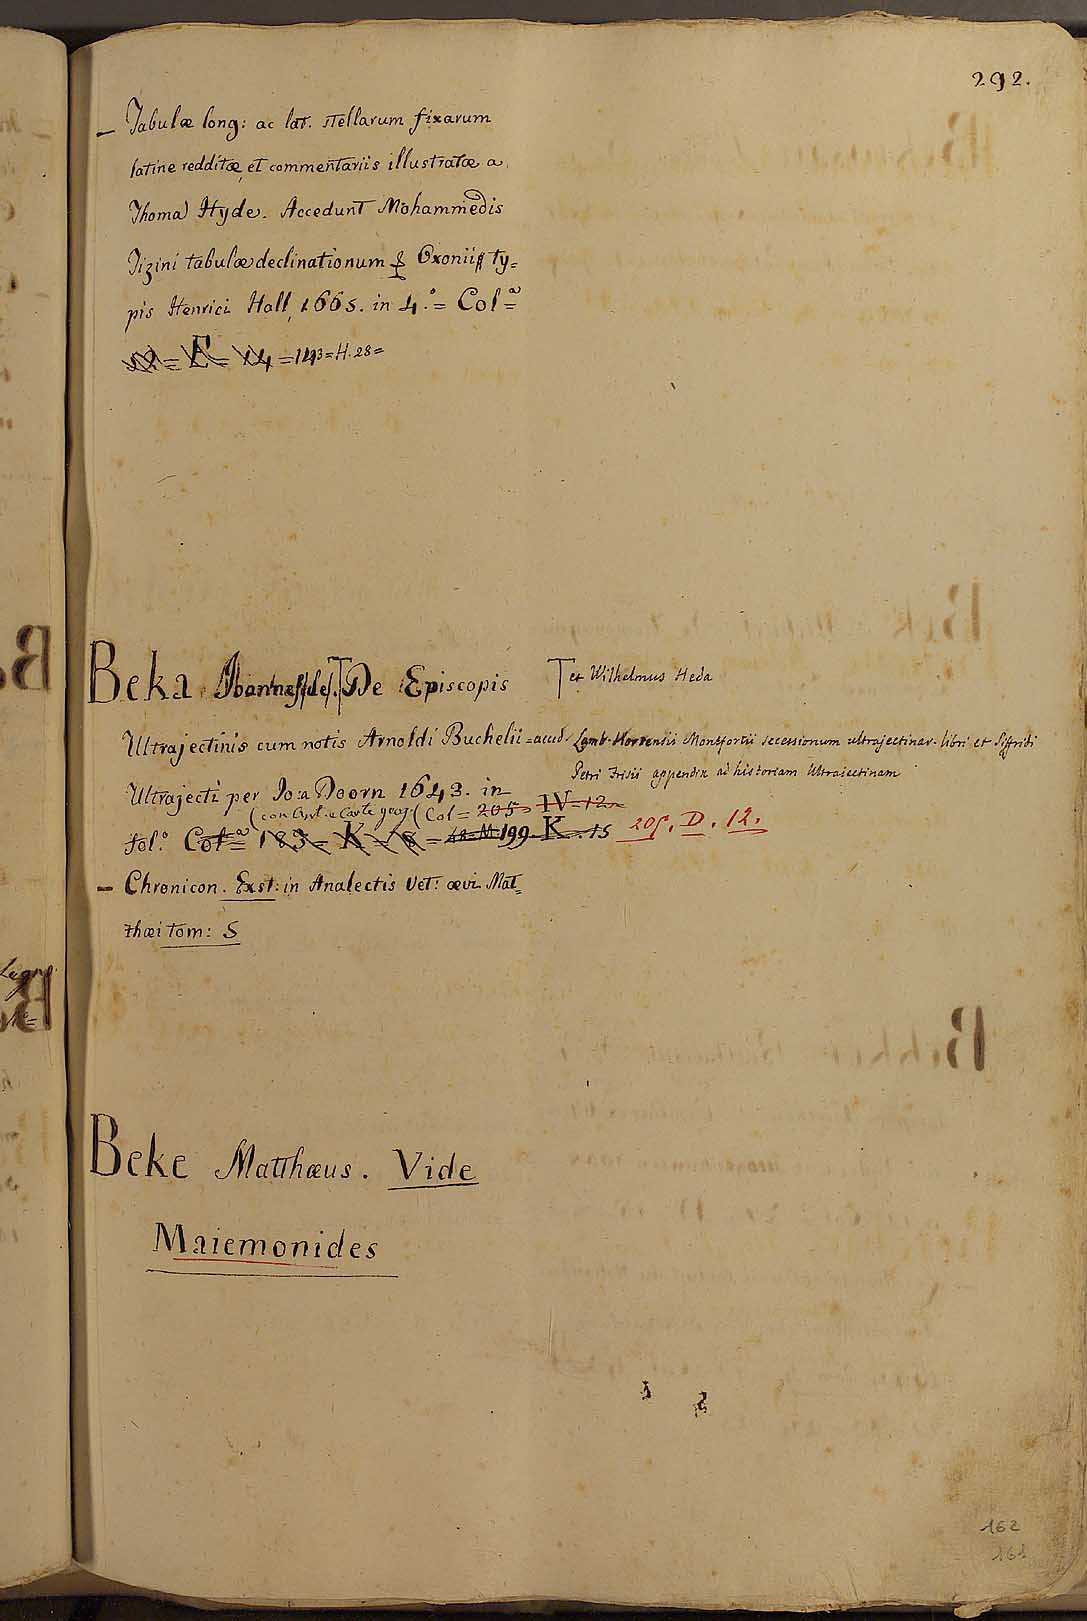 292.
— Tabulæ long: ac lat. stellarum fixarum
latine redditæ, et commentariis illustratæ a
Thoma Hyde. Accedunt Mohammedis
Tizini tabulæ declinationum & Oxonii ty=
pis Henrici Hall, 1665. in 4.º = Colª =
= E = 14 = 143 = H. 28 =
Beka Joannes de. De Episcopis
et Wilhelmus Heda
Ultrajectinis cum notis Arnoldi Buchelii = acced. Lamb. Hortensii Montfortii secessionum ultrajectinar. libri et Siffridi
Petri Frisii appendix ad historiam Ultraiectinam
Ultrajecti per Jo: a Doorn 1643. in
(con Ant. e Carte geog. (Col = 205 = IV = 12 =
fol.º Colª = 183 = K = 8 = 48 = M 199. K. 15 205. D. 12.
— Chronicon. Exst: in Analectis Vet: ævi Mat=
thæi tom: 5
Beke Matthæus. Vide
Maiemonides
162
161